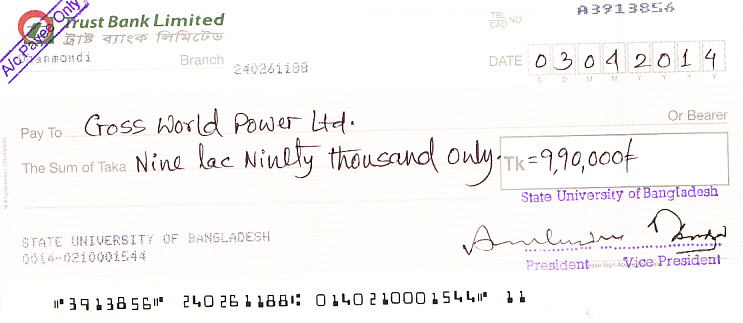 Trust Bank Limited
ট্রাষ্ট ব্যাংক লিমিটেড
A/c Payee Only
Dhanmondi Branch 240261188
TBL CAD NO A3913856
DATE 03042014
D D M M Y Y Y Y
Pay To Cross World Power Ltd. Or Bearer
The Sum of Taka Nine lac Ninety thousand only. Tk =9,90,000/-
State University of Bangladesh
STATE UNIVERSITY OF BANGLADESH
0014-0210001544
President Please Sign Above Vice President
⑈3913856⑈ 240261188⑆ 0140210001544⑈ 11